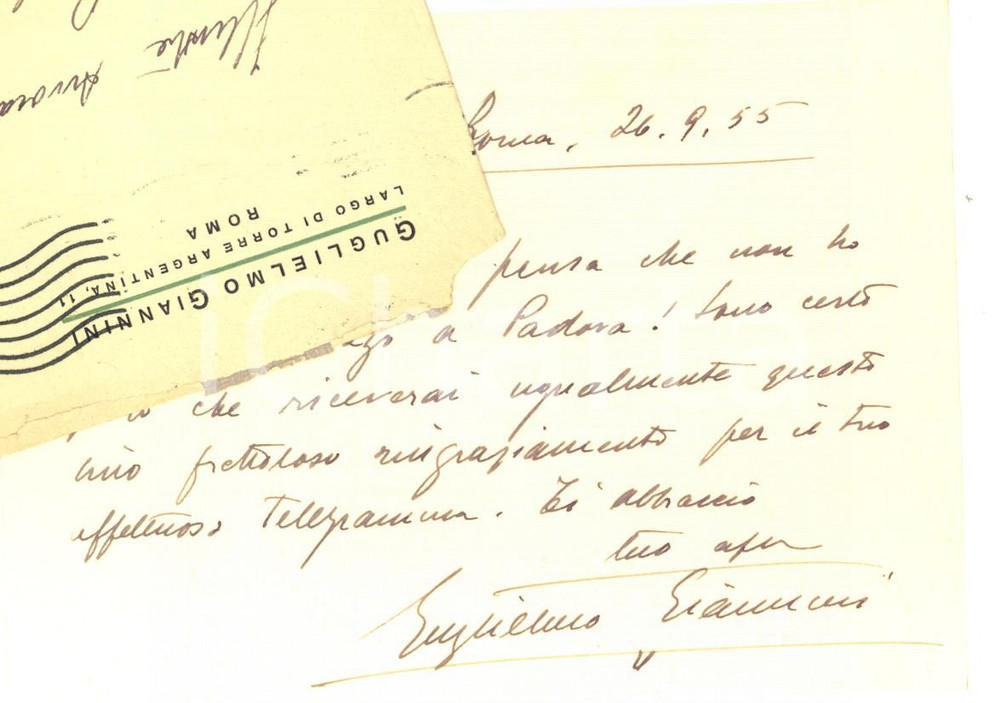 Illustre
GUGLIELMO GIANNINI
LARGO DI TORRE ARGENTINA, 11
ROMA
Roma, 26.9.55
pensa che non ho
a Padova! Sono certo
che riceverai ugualmente questo
mio frettoloso ringraziamento per il tuo
affettuoso telegramma. Ti abbraccio
tuo aff
Guglielmo Giannini